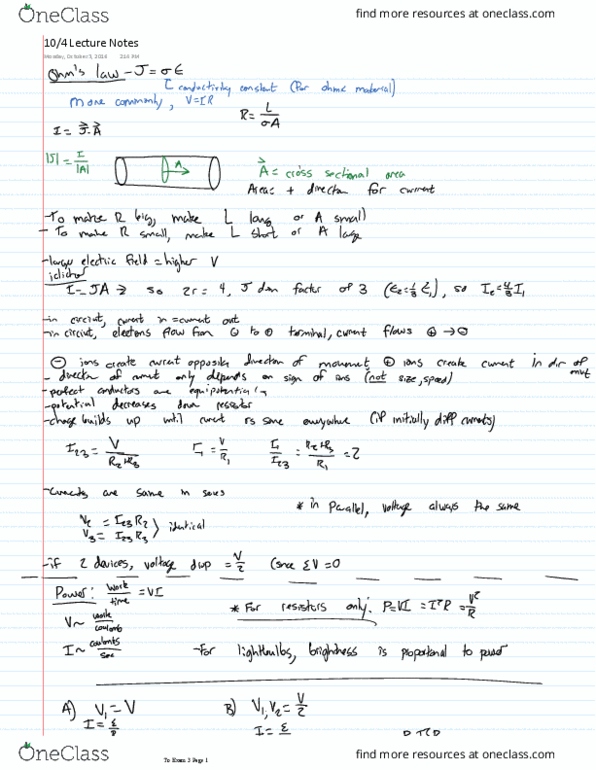 OneClass
find more resources at oneclass.com
10/4 Lecture Notes
Ohm's law - J = σE
conductivity constant (for ohmic material)
more commonly, V=IR
R = L/σA
I = J⃗·A⃗
|J| = I/|A|
A
A⃗ = cross sectional area
Area + direction for current
-To make R big, make L long or A small)
- To make R small, make L short or A large
-larger electric field = higher V
iclicker
I=JA → so 2r = 4, J down factor of 3 (E₂=⅓E₁), so I₂=4/3 I₁
-in circuit, current in = current out
-in circuit, electrons flow from ⊖ to ⊕ terminal, current flows ⊕→⊖
⊖ ions create current opposite direction of movement, ⊕ ions create current in dir of mvt
- direction of current only depends on sign of ions (not size, speed)
-perfect conductors are equipotential
-potential decreases down resistor
-charge builds up until current is same everywhere (if initially diff currents)
I₂₃ = V/R₂+R₃ I₁ = V/R₁ I₁/I₂₃ = R₂+R₃/R₁ = 2
-Currents are same in series
* in Parallel, voltage always the same
V₂ = I₂₃R₂
V₃ = I₂₃R₃
identical
-if 2 devices, voltage drop = V/2 (since ΣV=0
Power: work/time = VI
* For resistors only: P=VI = I²R = V²/R
V~ work/coulomb
I~ coulombs/sec
-For lightbulbs, brightness is proportional to power
A) V₁ = V
B) V₁, V₂ = V/2
I = ε/R
I = ε
To Exam 3 Page 1
OneClass
find more resources at oneclass.com